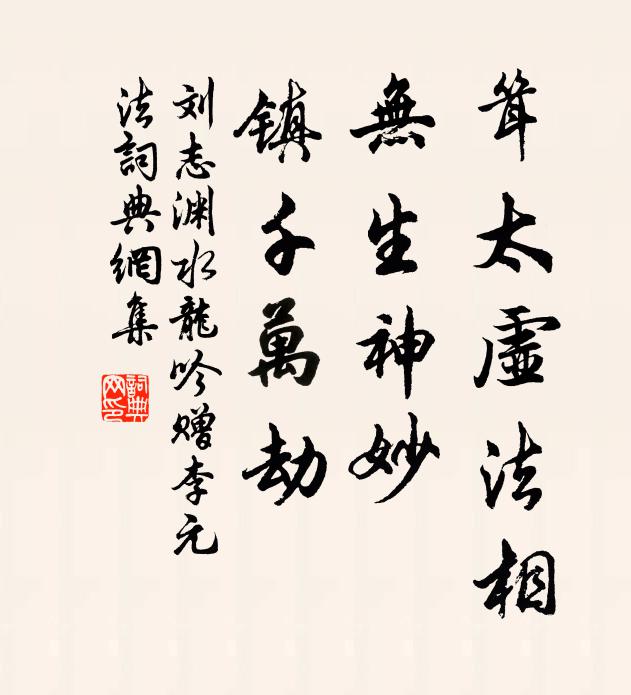 茸太虛法相
無生神妙
镇千萬劫
刘志渊水龍吟赠李元
法詞典網集
詞典网印